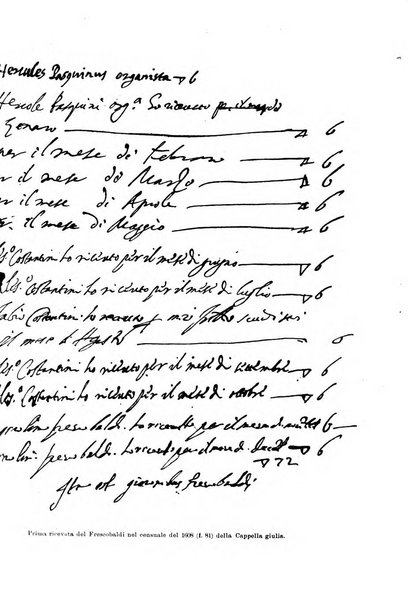 Hercules Pasquinus organista 6
Hercole Pasquini org.ª ho riceuuto per il mese di
Genaro 6
per il mese di Febraro 6
per il mese di Marzo 6
per il mese di Aprile 6
per il mese di Maggio 6
Costantini ho riceuto per il mese di giugno 6
Costantini ho riceuto per il mese di luglio 6
Fabio Costantini ho riceuuto scudi sei
il mese d'
Costantini ho riceuto per il mese di 6
Costantini ho riceuto per il mese di 6
frescobaldi ho riceuuto per il mese di 6
frescobaldi ho riceuuto per il mese di 6
72
Ita est frescobaldi
Prima ricevuta del Frescobaldi nel censuale del 1608 (f. 81) della Cappella giulia.